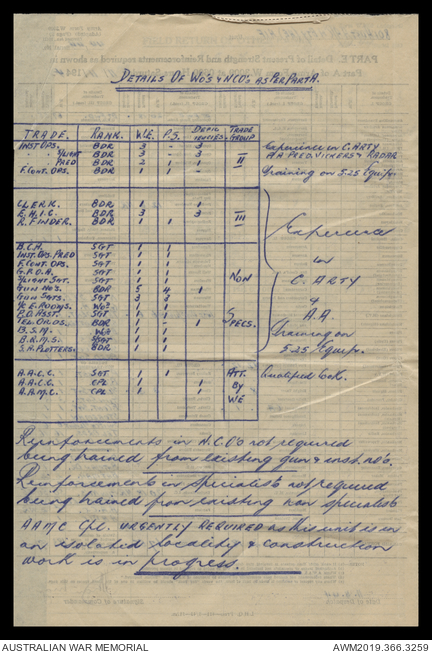 DETAILS OF WO'S & NCO'S AS PER PART A.
TRADE. RANK. W.E. P.S. DEFICIENCIES. TRADE GROUP
INST OPS. BDR 3 - 3
" " HEIGHT BDR 3 - 3
" " PRED BDR 2 1 1 II
F'CONT. OPS. BDR 1 1 -
Experience in C. ARTY
AA PRED. VICKERS & RADAR
Training on 5.25 Equip.
CLERK. BDR 1 1
E.H.I.C. BDR 3 3 III
R. FINDER. BDR 1 1
B.C.H. SGT 1 1
INST. OPS. PRED SGT 1 1
F'CONT. OPS. SGT 1 1
G.P.O.A. SGT 1 1
HEIGHT SGT. SGT 1 1
GUN NO'S. BDR 5 4 1
GUN SGTS. SGT 3 3
1 1
SGT 1 1
BDR 1 - 1
B.S.M. 1 1
1 1
S.A. PLOTTERS. BDR 1 1
NON
SPECS.
Experience
in
C. ARTY
&
A.A.
Training on
5.25 Equip.
A.A.C.C. SGT 1 1 ATT.
A.A.C.C. CPL 1 1 BY
A.A.M.C. CPL 1 1 WE
Qualified Cook.
Reinforcements in N.C.O's not required
being trained from existing gun & inst. no's.
Reinforcements in specialists not required
being trained from existing non specialists
AAMC Cpl. URGENTLY REQUIRED as this unit is in
an isolated locality & construction
work is in progress.
AUSTRALIAN WAR MEMORIAL
AWM2019.366.3259